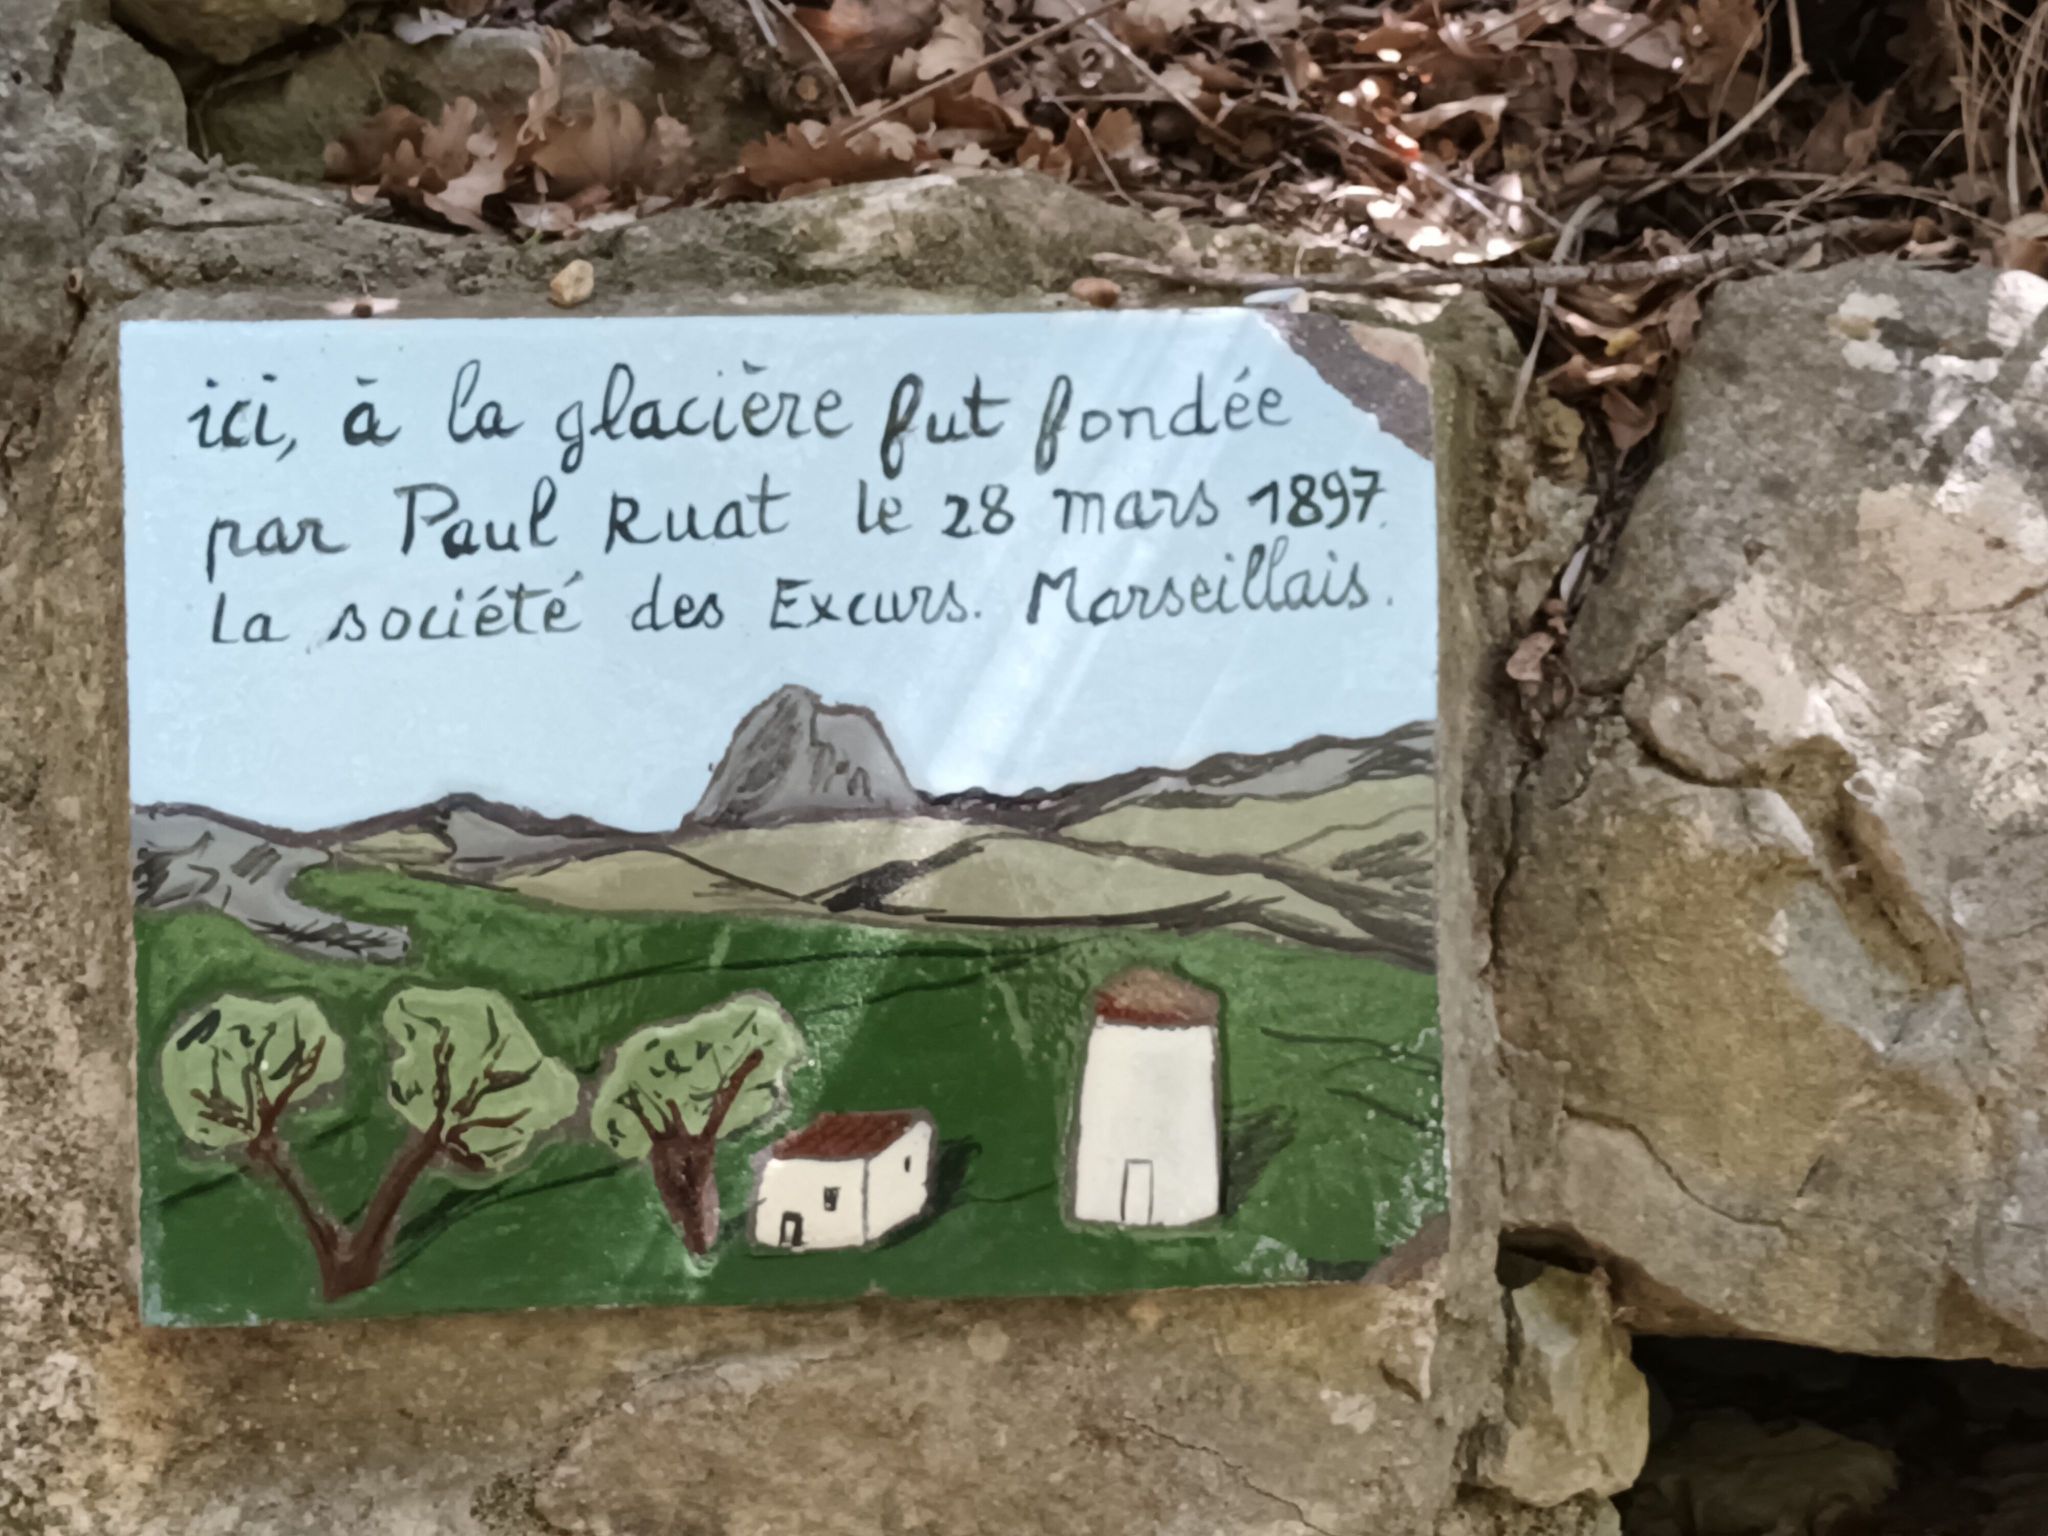 ici, à la glacière fut fondée
par Paul Ruat le 28 mars 1897.
La société des Excurs. Marseillais.